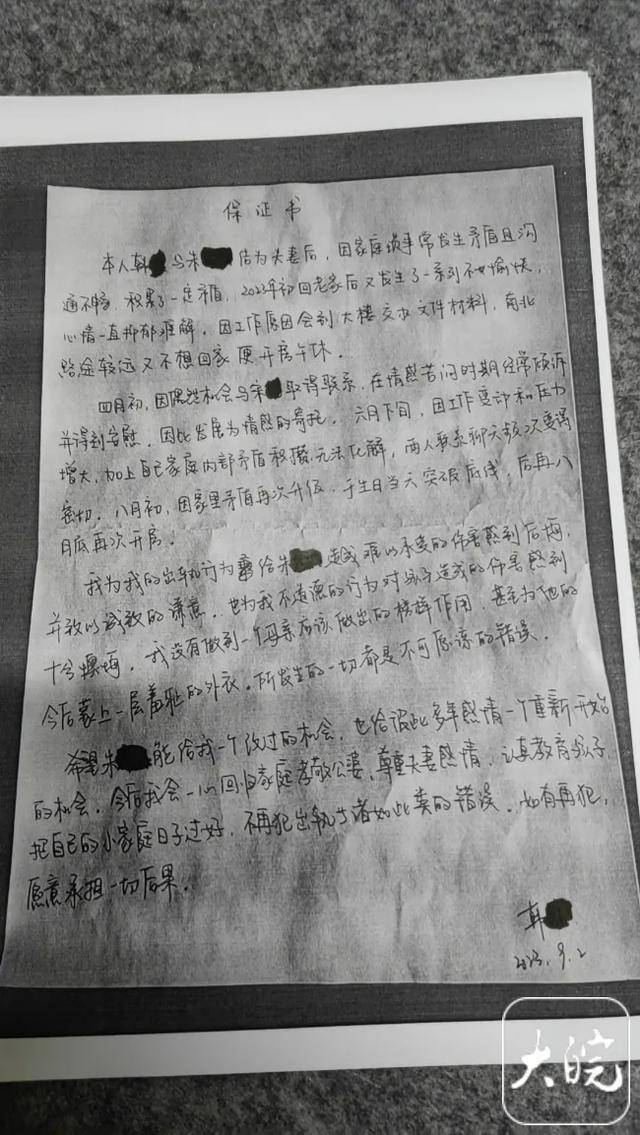 保证书
本人韩 与朱 结为夫妻后，因家庭琐事常发生矛盾且沟
通不畅，积累了一定矛盾，2023年初回老家后又发生了一系列不愉快，
心情一直抑郁难解。因工作原因会到大楼交办文件材料，南北
路途较远又不想回家便开房午休。
四月初，因偶然机会与朱 取得联系，在情感苦闷时期经常倾诉
并得到安慰，因此发展为情感的寄托。六月下旬，因工作变计和压力
增大，加上自己家庭内部矛盾积攒无法化解，两人联系聊天频次变得
密切。八月初，因家里矛盾再次升级，于生日当天突破底线，后再八
月底再次开房。
我为我的出轨行为 给朱 造成难以承受的伤害感到后悔，
并致以诚致的谦意。也为我不道德的行为对孩子造成的伤害感到
十分懊悔，我没有做到一个母亲应该做出的榜样作用，甚至为他的
今后蒙上一层羞耻的外衣。所发生的一切都是不可原谅的错误。
希望朱 能给我一个改过的机会，也给彼此多年感情一个重新开始
的机会，今后我会一心回归家庭孝敬公婆，尊重夫妻感情，认真教育孩子，
把自己的小家庭日子过好，不再犯出轨或者如此类的错误。如有再犯，
愿意承担一切后果。
韩
2023.9.2
大皖